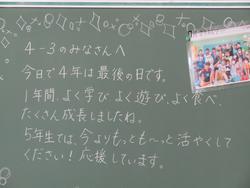 4-3のみなさんへ
今日で4年は最後の日です。
1年間、よく学び、よく遊び、よく食べ、
たくさん成長しましたね。
5年生では、今よりもっともっと〜活やくして
ください！応援しています。